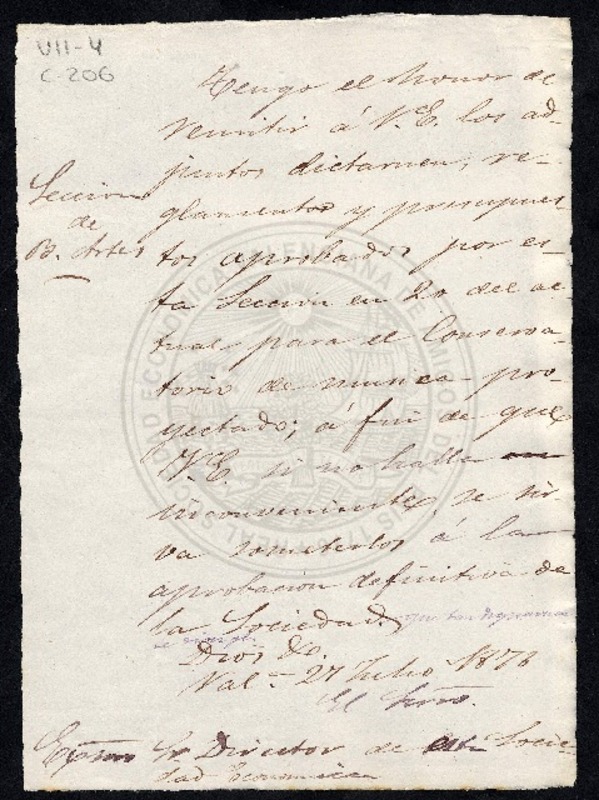 VII-4
C-206
Seccion
de
B. Artes
Tengo el honor de
remitir á V.E. los ad-
juntos dictamen, re-
glamentos y presupues-
tos aprobados por es-
ta Seccion en 20 del ac-
tual para el Conserva-
torio de musica pro-
yectado; á fin de que
V.E. si no halla
inconveniente, se sir-
va someterlos á la
aprobacion definitiva de
la Sociedad.
Dios &c.
Val.ª 27 Julio 1878
El Srio.
Exmo Sr Director de esta Socie-
dad Economica
REAL SOCIEDAD ECONOMICA VALENCIANA DE AMIGOS DEL PAIS 1776